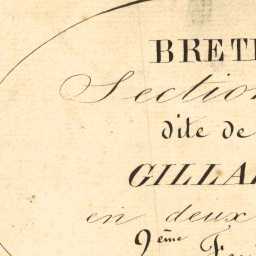 BRETE
Section
dite de
GILLA
en deux
2ème Feu